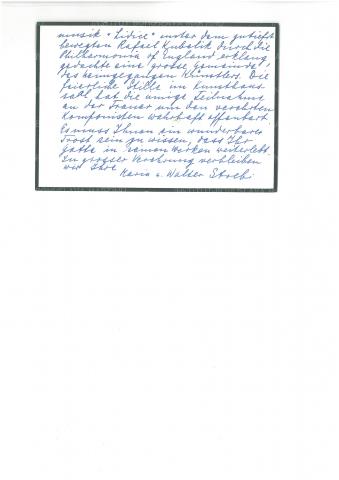 musik "Lidice" unter dem zutiefst
bewegten Rafael Kubelik durch die
Philharmonia of England erklang
gedachte eine grosse Gemeinde
des heimgegangen Künstlers. Die
feierliche Stille im Kunsthaus-
saal hat die innige Teilnahme
an der Trauer um den verehrten
Komponisten wahrhaft offenbart.
Es muss Ihnen ein wunderbarer
Trost sein zu wissen, dass Ihr
Gatte in seinen Werken weiterlebt.
In grosser Verehrung verbleiben
wir Ihre
Maria u. Walter